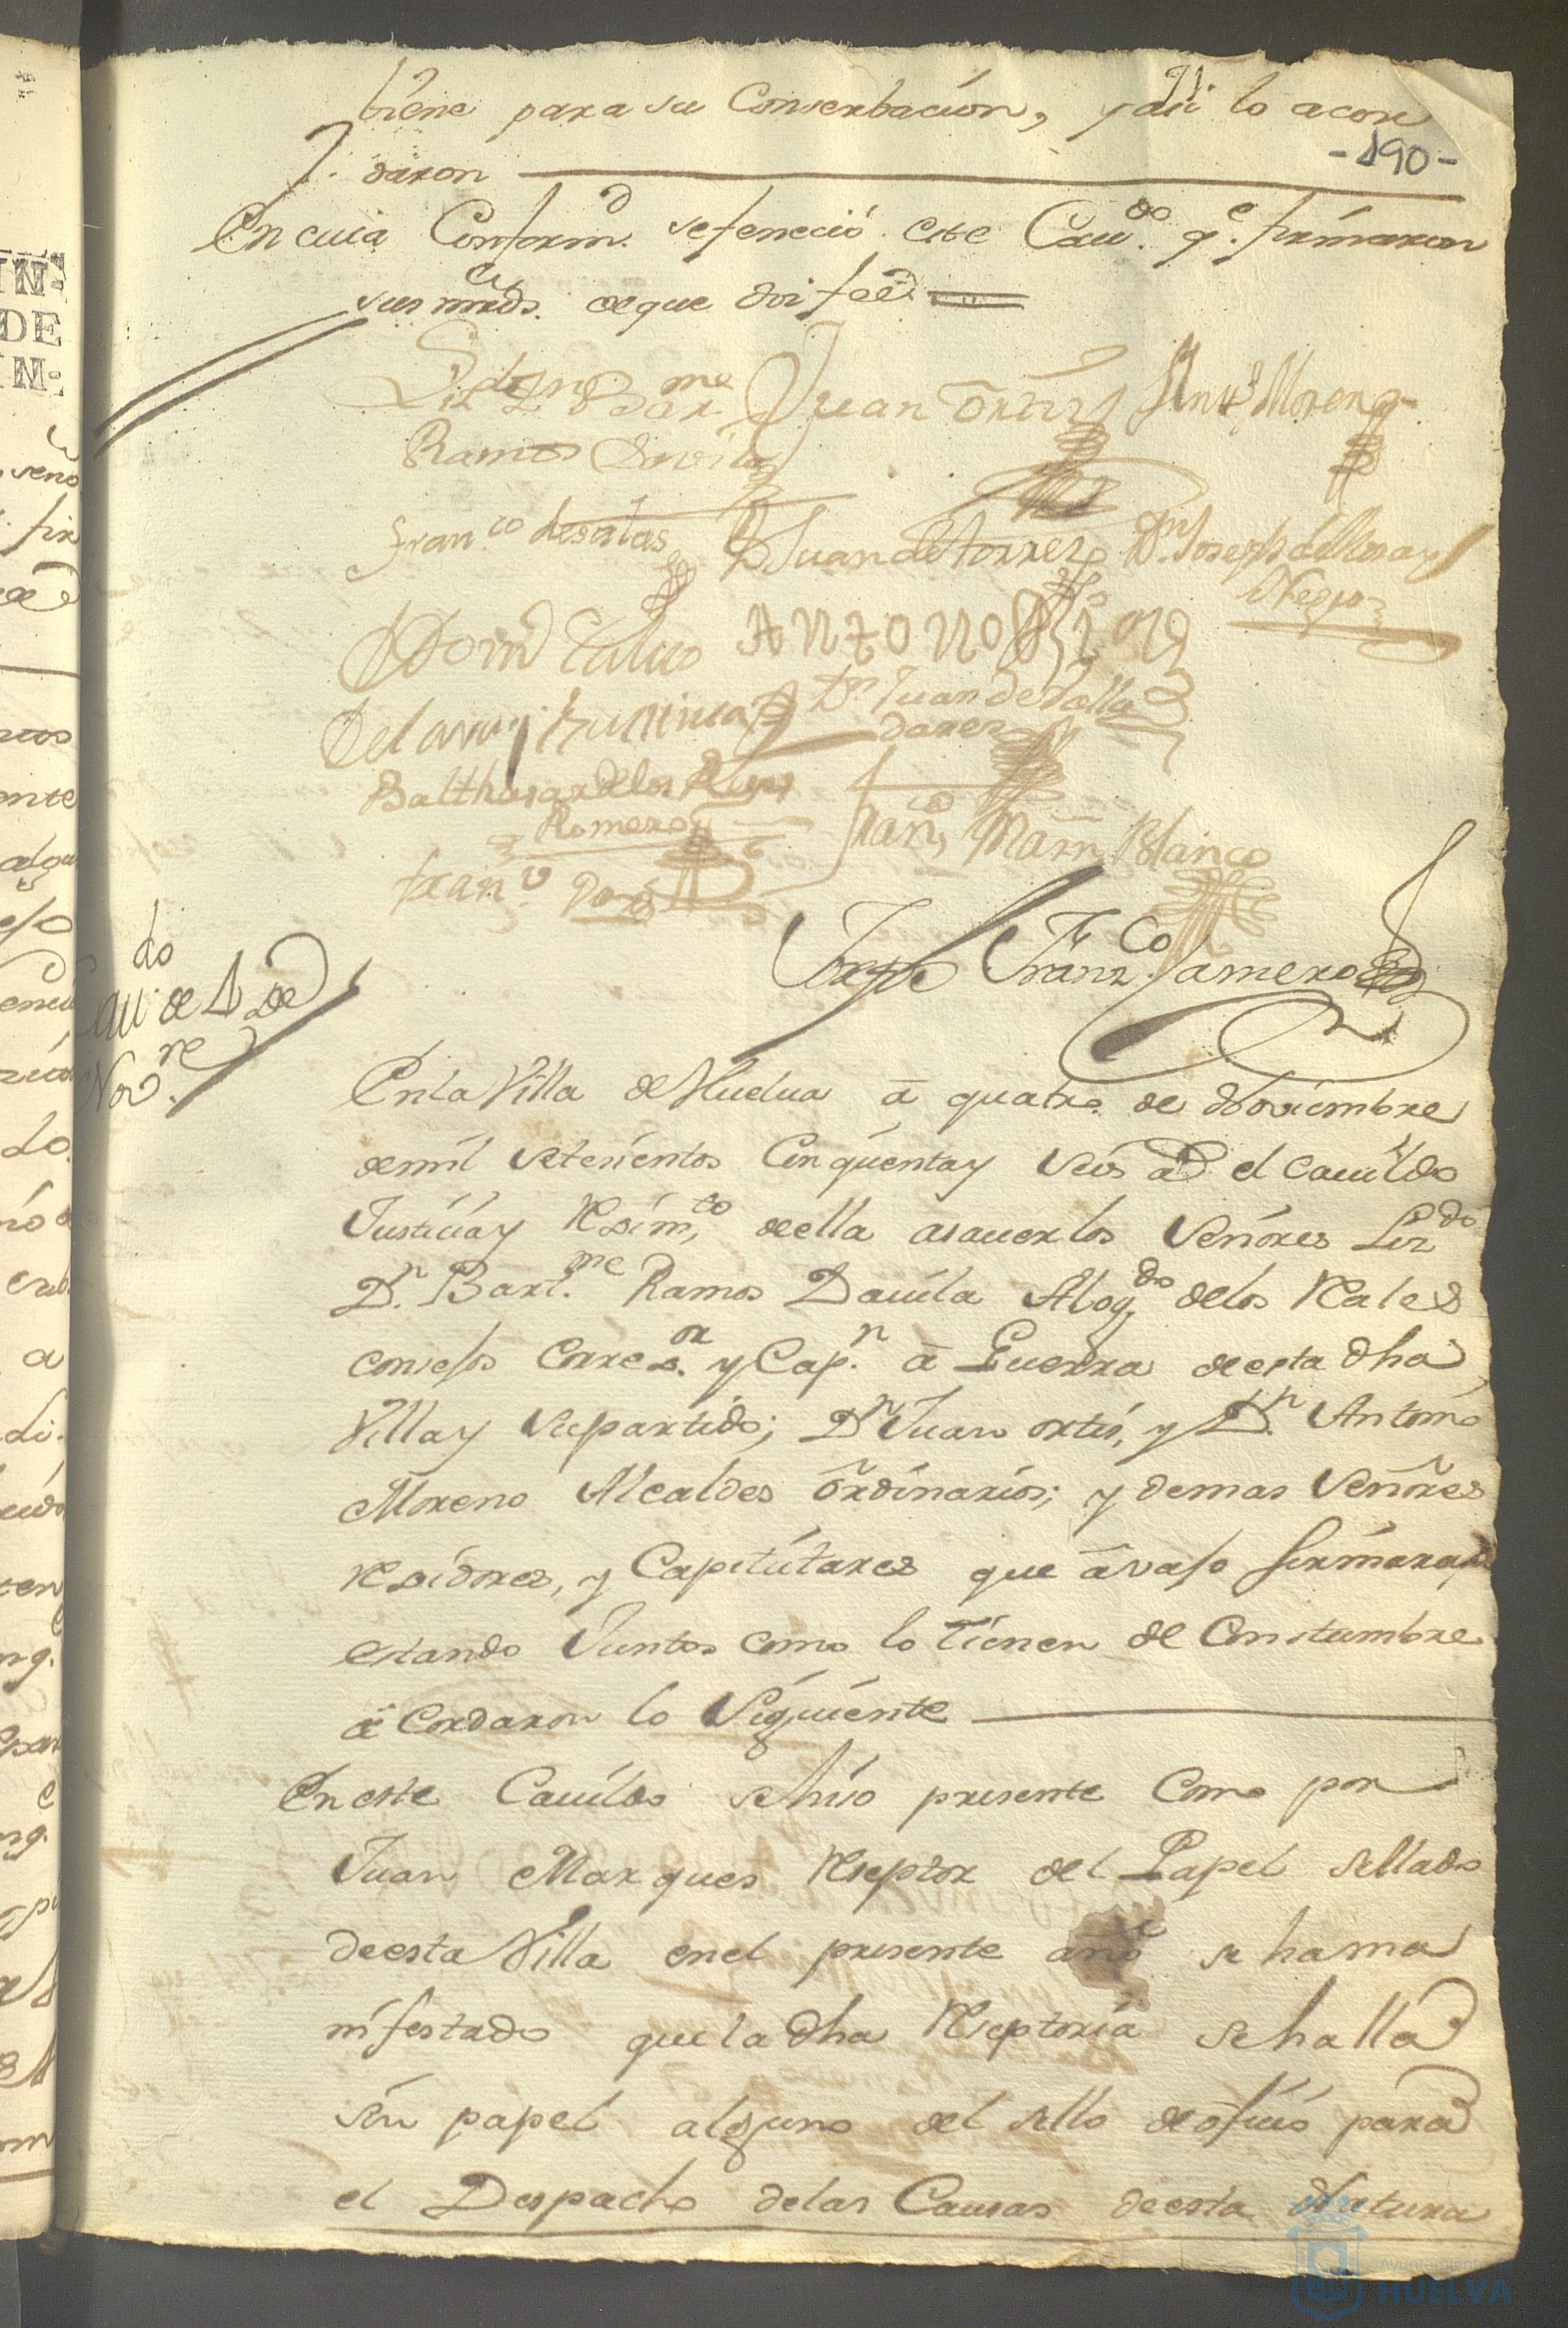 91.
tiene para su Conserbacion, y asi lo acor
daron
-190-
En cuia Conform.d se feneció este Cau.do q.e firmaron
sus mrds. de que doi fee
Lizdo Dn Barme Juan Ortiz Anto Moreno
Ramos Davila
Franco de salas Dn Juan de torres Dn Joseph del Rosa y
Negro
Antonio
Dn Juan de Valla
dares
Balthasar de los Reyes
Romero
Franco Marn Blanco
Franco
Jorge Franzco Jamero
Cau.do de 4 de
Nov.re
En la Villa de Huelua â quatro de Noviembre
de mil setesientos Cinquenta y seis aD el cauildo
Justicia y Rexim.to de ella asauer los Señores Lizdo
D.n Barl.me Ramos Dauila Abogdo delos Rales
consejos Correx.or y Cap.n â Guerra de esta dha
Villa y su partido; Dn Juan ortis, y D.n Antonio
Moreno Alcaldes ôrdinarios; y demas Señores
Rexidores, y Capitulares que âvajo firmaran
estando Juntos como lo tienen de Constumbre
âcordaron lo Siguiente
En este Cauildo se hiso presente Como por
Juan Marques Reseptor del Papel sellado
de esta Villa en el presente año se ha ma
nifestado que la dha Reseptoria se halla
sin papel alguno del sello de ôficio para
el Despacho de las Causas de esta Natura
Ayuntamiento
HUELVA